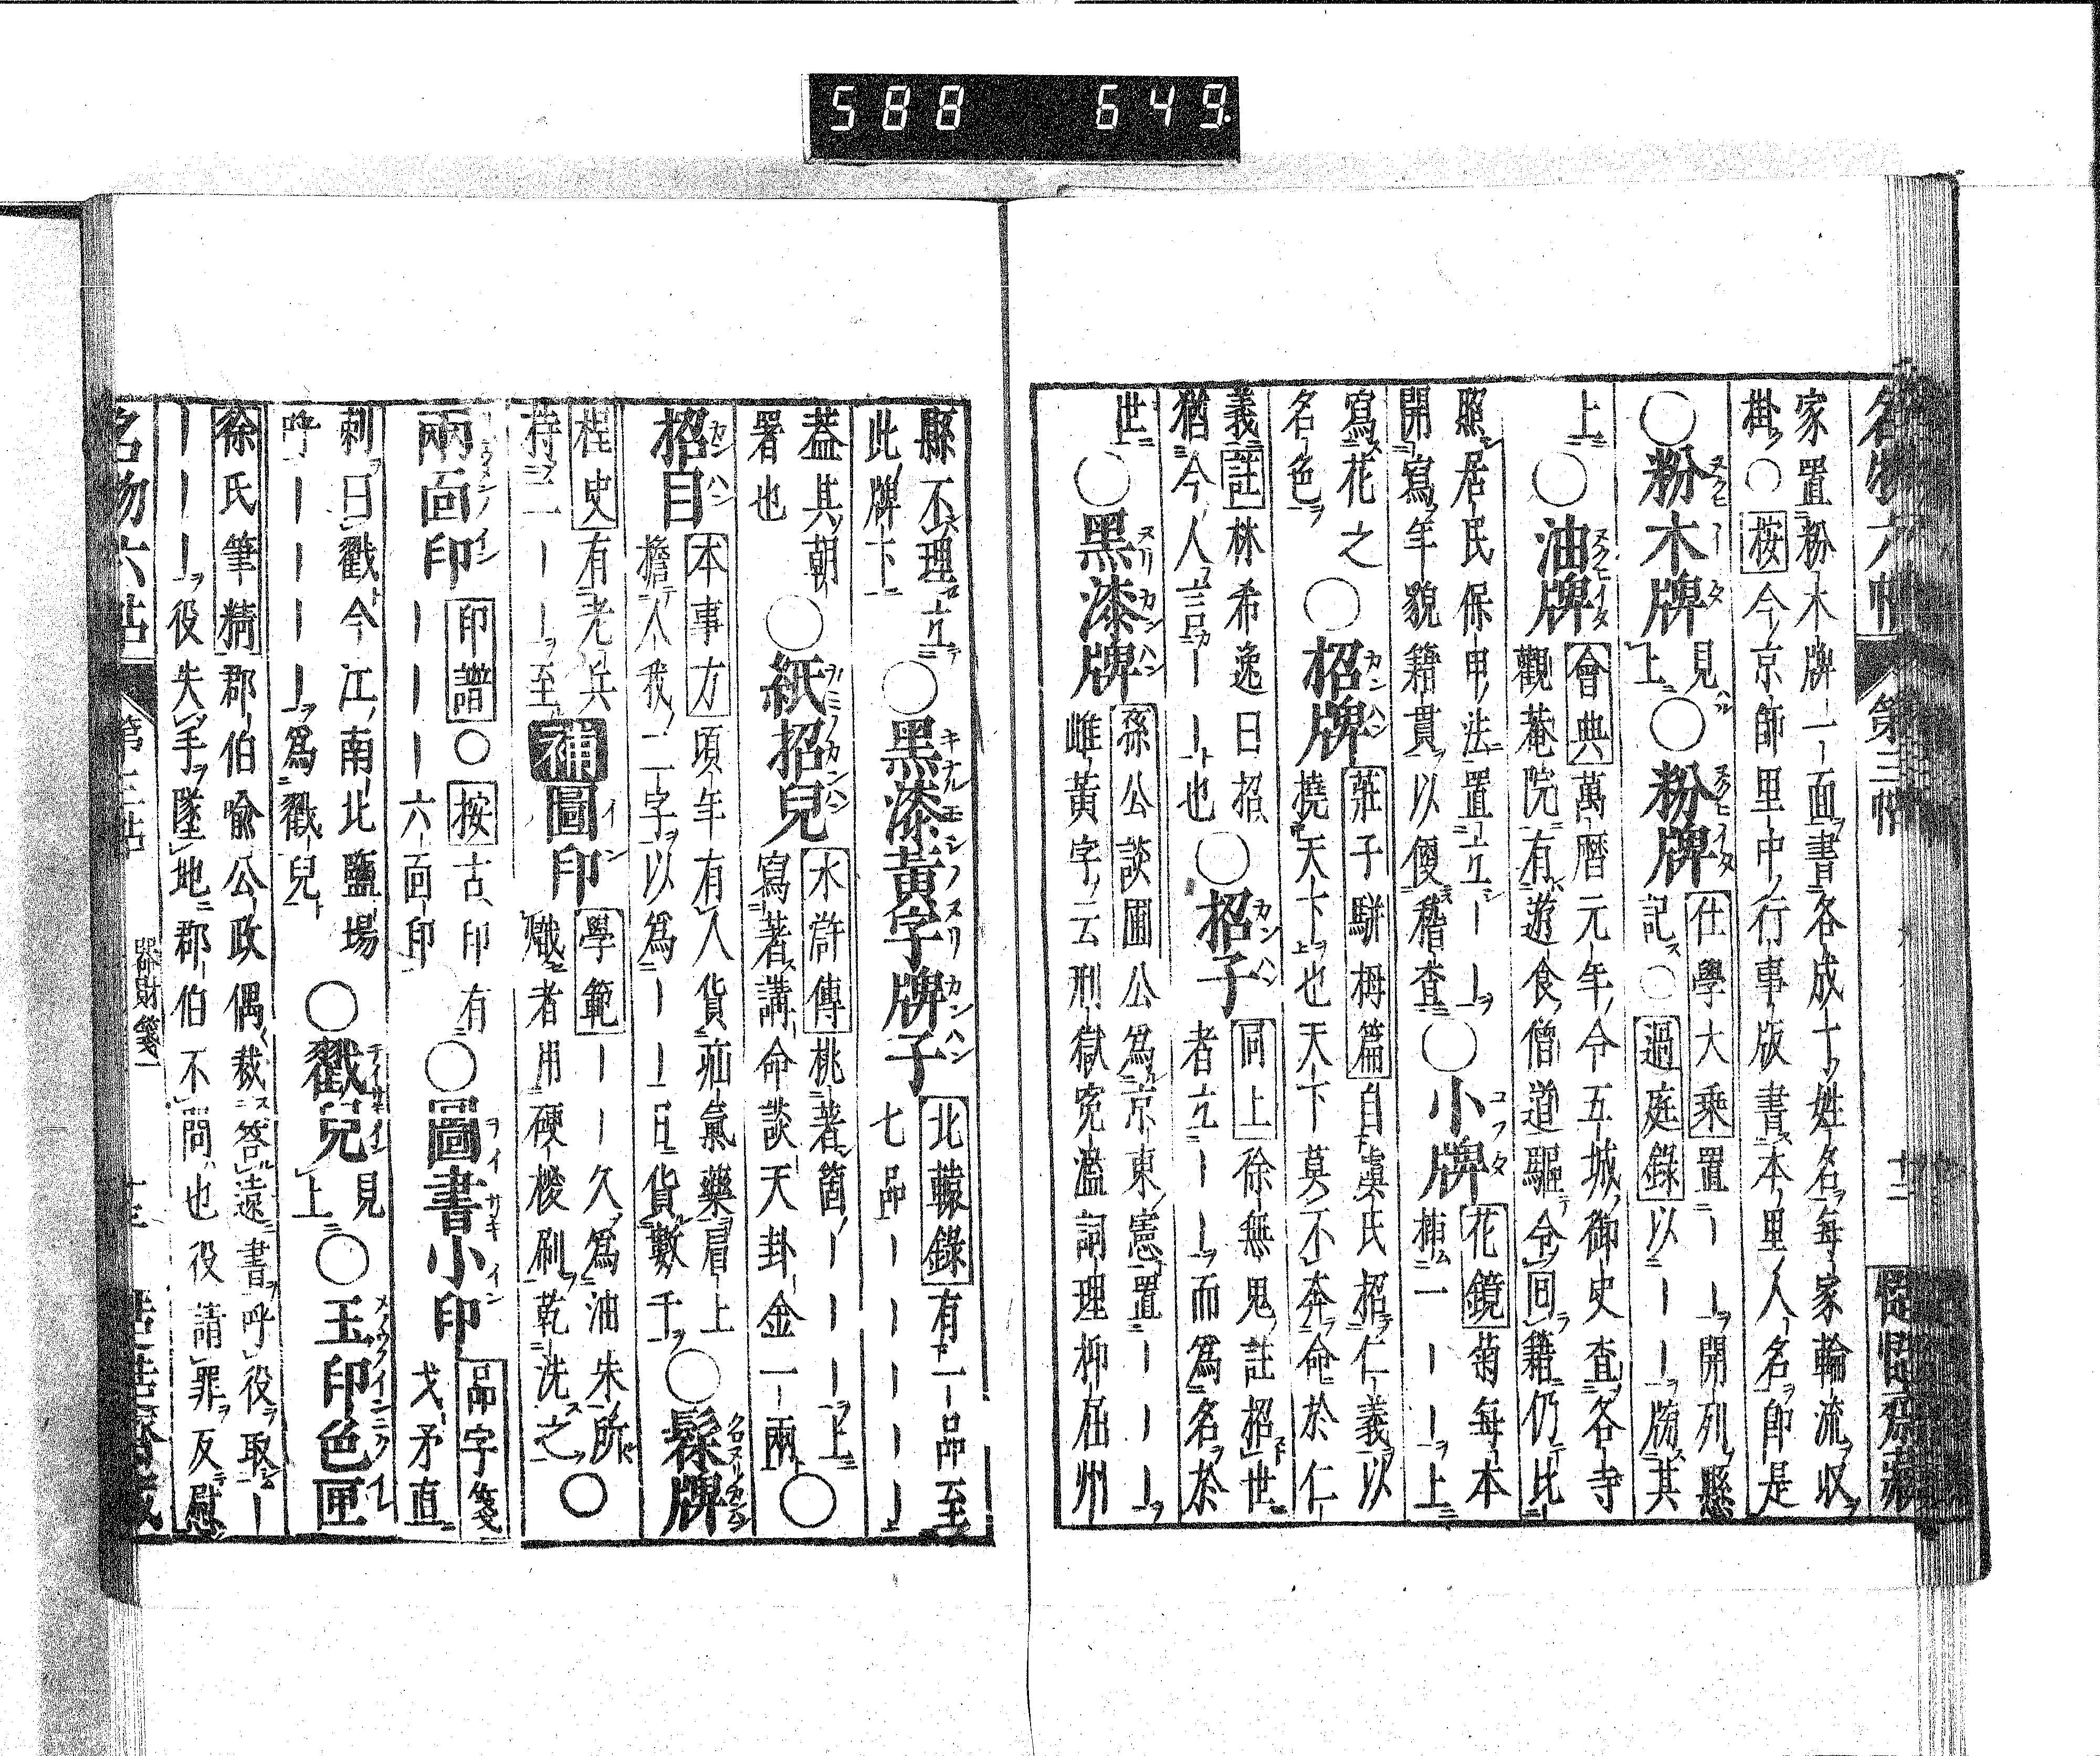 588 649.
名物六帖 第三帖 十二
家置粉木牌一面書各成丁姓名每家輪流收
掛○按今京師里中行事版書本里人名即是
○粉木牌見上○粉牌仕學大乘置｜｜開列懸
記○過庭錄以｜｜牓其
上○油牌會典萬曆元年令五城御史査各寺
觀菴院有遊食僧道驅令回籍仍比
照居民保甲法置立｜｜
開寫年貌籍貫以便稽査○小牌花鏡菊每本
插一｜｜上
寫花之
名色○招牌莊子駢拇篇自虞氏招仁義以
撓天下也天下莫不奔命於仁
義註林希逸曰招
猶今人言｜｜也○招子同上徐無鬼註招世
者立｜｜而爲名於
世○黑漆牌孫公談圃公爲京東憲置｜｜｜
雌黃字云刑獄寃濫詞理抑屈州
縣不理立
此牌下○黑漆黃字牌子北轅錄有一品至
七品｜｜｜｜｜
蓋其朝
署也○紙招兒水滸傳桃著箇｜｜｜上
寫著講命談天卦金一兩○
招目本事方頃年有人貨疝氣藥肩上
擔人我二字以爲｜｜日貨數千○髹牌
桯史有老兵
持一｜｜至補圖印學範｜｜久爲油朱所
熾者用硬椶刷乾洗之○
兩面印印譜○按古印有
｜｜｜六面印○圖書小印品字箋
戈矛直
刺曰戳今江南北鹽場
呼｜｜｜｜爲戳兒○戳兒見上○玉印色匣
徐氏筆精郡伯喩公政偶裁答遠書呼役取｜
｜｜｜役失手墜地郡伯不問也役請罪反慰
名物六帖 第三帖 器財箋一